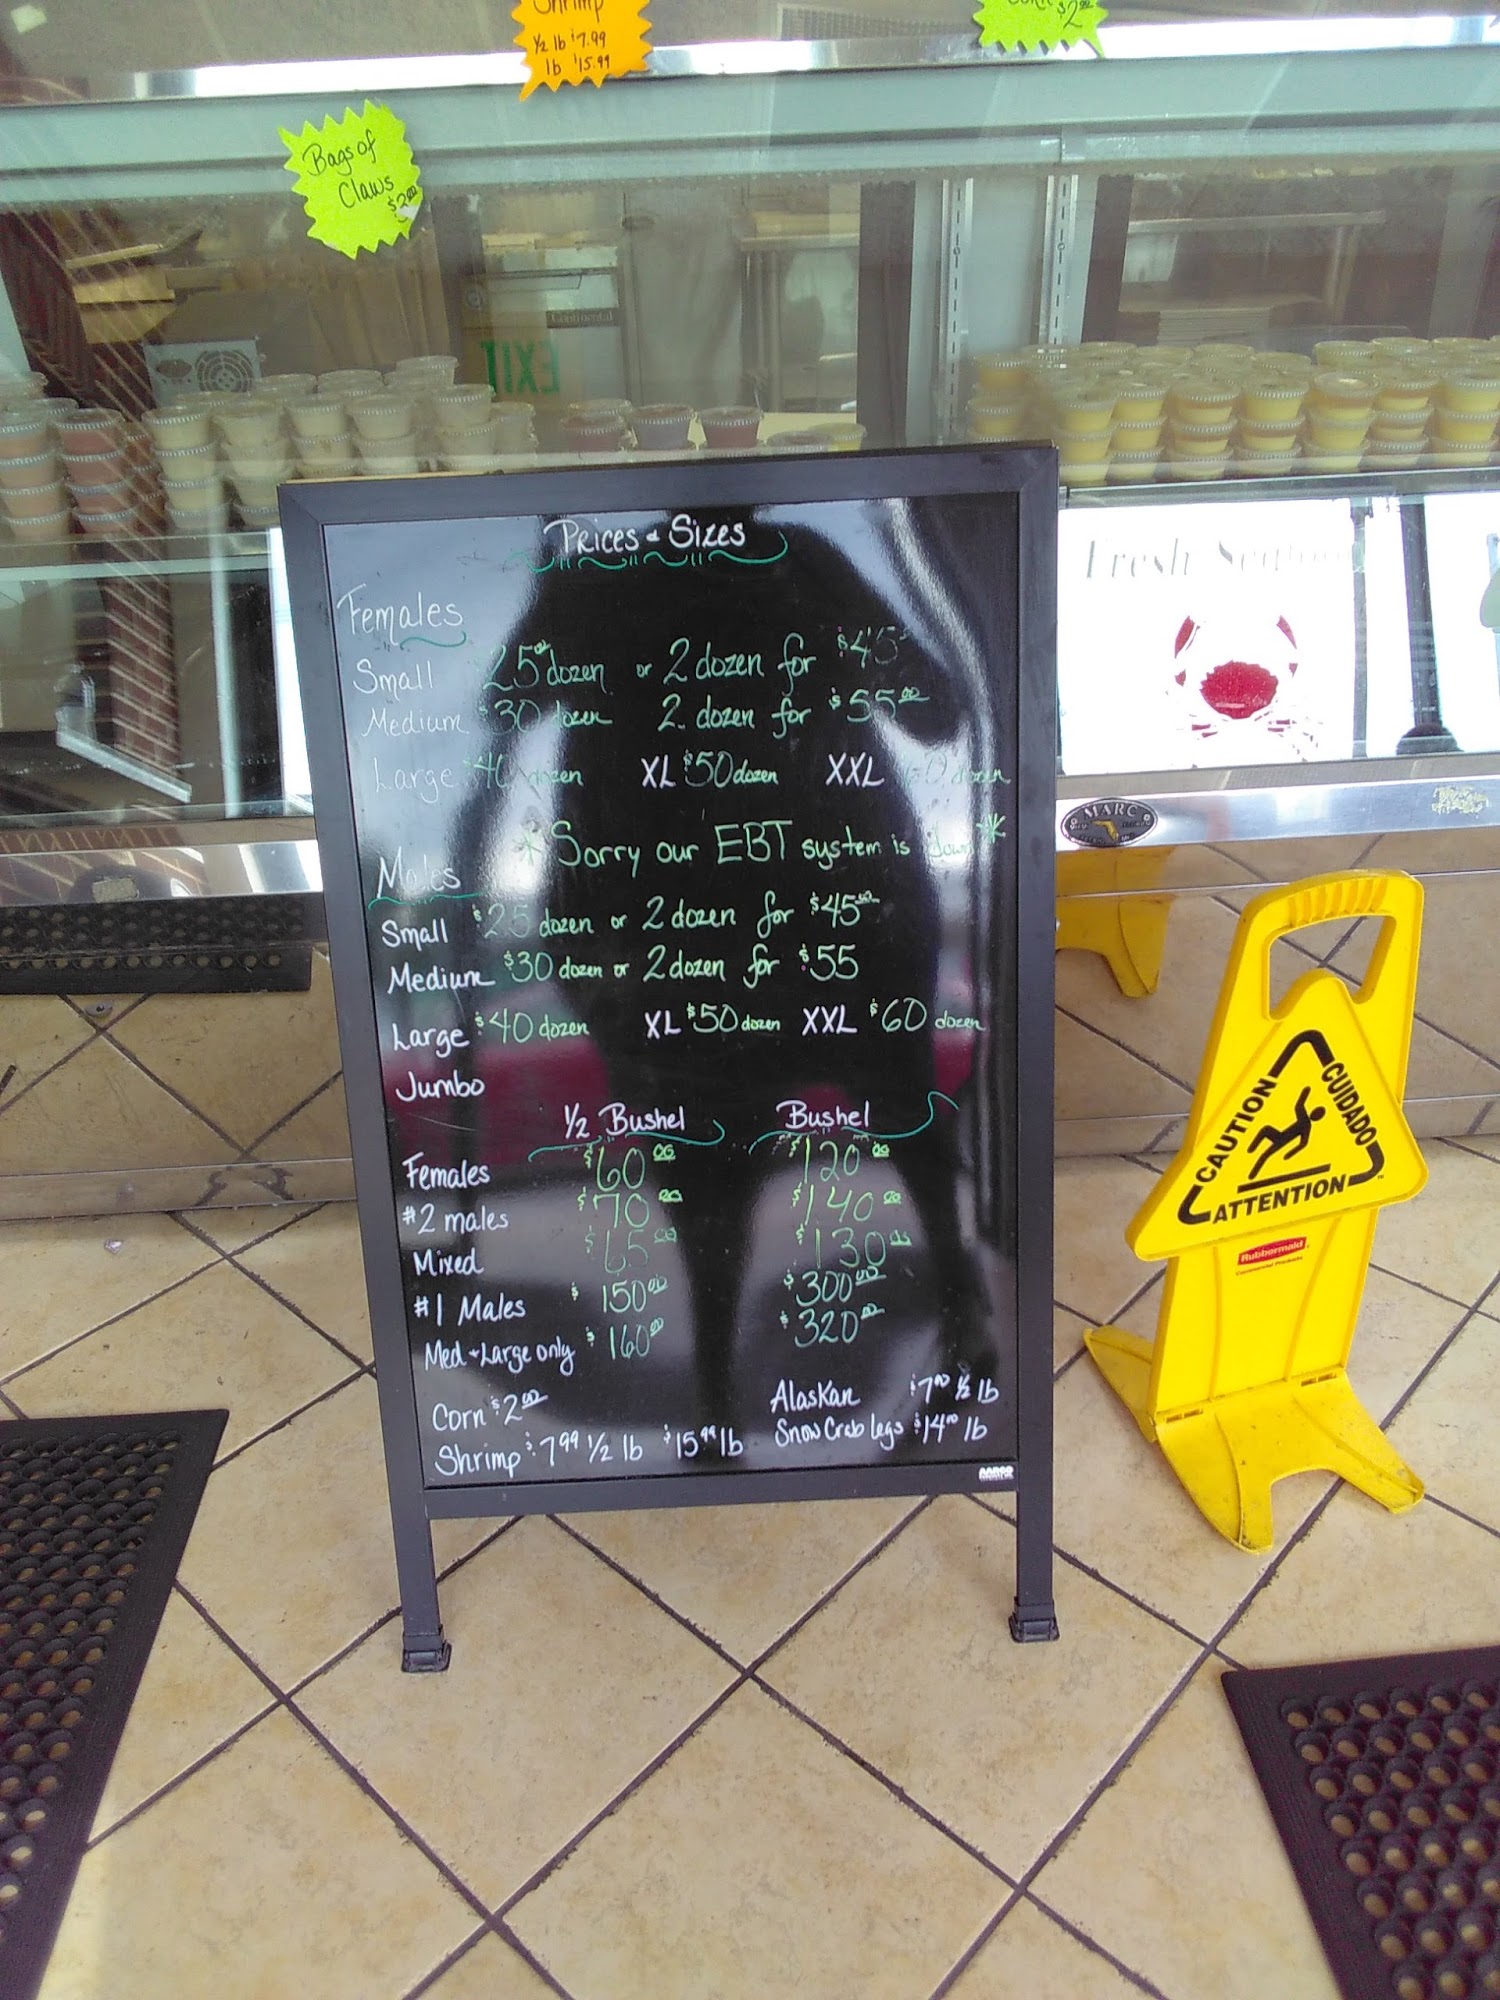 Shrimp
1/2 lb $7.99
lb $15.99
$2.00
Bags of
Claws
$2.00
Continental
EXIT
Prices & Sizes
Females
Small 25.00 dozen or 2 dozen for $45
Medium $30 dozen 2 dozen for $55.00
Large $40 dozen XL $50 dozen XXL dozen
* Sorry our EBT system is down *
Males
Small $25 dozen or 2 dozen for $45.00
Medium $30 dozen or 2 dozen for $55
Large $40 dozen XL $50 dozen XXL $60 dozen
Jumbo
1/2 Bushel Bushel
Females $60.00 $120.00
#2 males $70.00 $140.00
Mixed $65.00 $130.00
#1 Males $150.00 $300.00
Med + Large only $160.00 $320.00
Corn $2.00
Shrimp $7.99 1/2 lb $15.99 lb
Alaskan $7.00 1/2 lb
Snow Crab legs $14.00 lb
AARCO
Fresh
MARC
CAUTION
CUIDADO
ATTENTION
Rubbermaid
Commercial Products